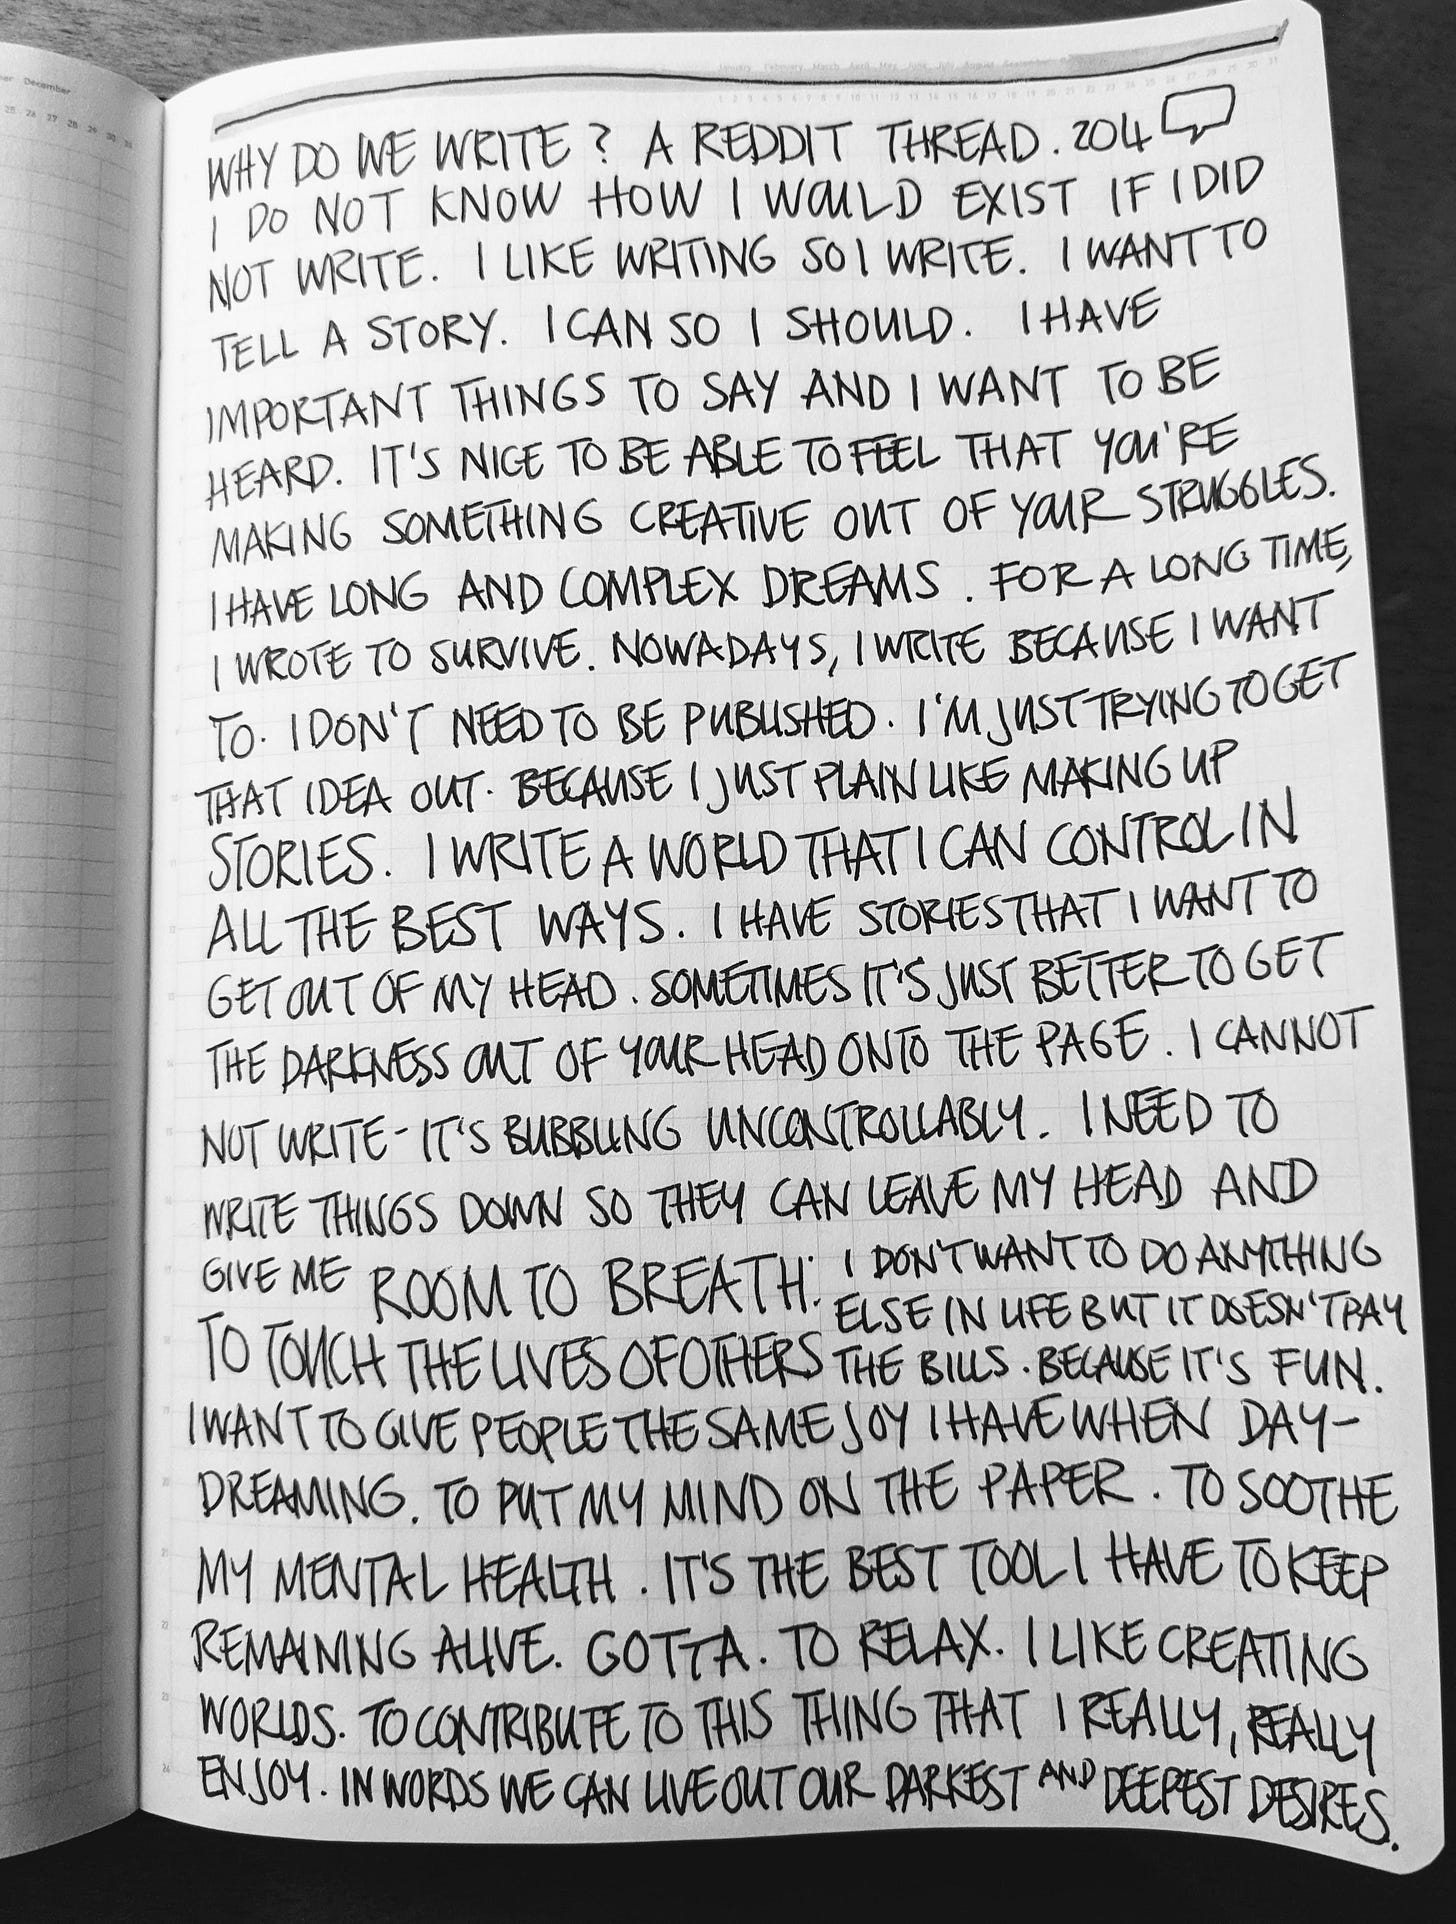 December
25 26 27 28 29 30 31
January February March April May June July August September
1 2 3 4 5 6 7 8 9 10 11 12 13 14 15 16 17 18 19 20 21 22 23 24 25 26 27 28 29 30 31
WHY DO WE WRITE? A REDDIT THREAD. 204
I DO NOT KNOW HOW I WOULD EXIST IF I DID
NOT WRITE. I LIKE WRITING SO I WRITE. I WANT TO
TELL A STORY. I CAN SO I SHOULD. I HAVE
IMPORTANT THINGS TO SAY AND I WANT TO BE
HEARD. IT'S NICE TO BE ABLE TO FEEL THAT YOU'RE
MAKING SOMETHING CREATIVE OUT OF YOUR STRUGGLES.
I HAVE LONG AND COMPLEX DREAMS. FOR A LONG TIME,
I WROTE TO SURVIVE. NOWADAYS, I WRITE BECAUSE I WANT
TO. I DON'T NEED TO BE PUBLISHED. I'M JUST TRYING TO GET
THAT IDEA OUT. BECAUSE I JUST PLAIN LIKE MAKING UP
STORIES. I WRITE A WORLD THAT I CAN CONTROL IN
ALL THE BEST WAYS. I HAVE STORIES THAT I WANT TO
GET OUT OF MY HEAD. SOMETIMES IT'S JUST BETTER TO GET
THE DARKNESS OUT OF YOUR HEAD ONTO THE PAGE. I CANNOT
NOT WRITE - IT'S BUBBLING UNCONTROLLABLY. I NEED TO
WRITE THINGS DOWN SO THEY CAN LEAVE MY HEAD AND
GIVE ME ROOM TO BREATH. I DON'T WANT TO DO ANYTHING
ELSE IN LIFE BUT IT DOESN'T PAY
TO TOUCH THE LIVES OF OTHERS THE BILLS. BECAUSE IT'S FUN.
I WANT TO GIVE PEOPLE THE SAME JOY I HAVE WHEN DAY-
DREAMING. TO PUT MY MIND ON THE PAPER. TO SOOTHE
MY MENTAL HEALTH. IT'S THE BEST TOOL I HAVE TO KEEP
REMAINING ALIVE. GOTTA. TO RELAX. I LIKE CREATING
WORLDS. TO CONTRIBUTE TO THIS THING THAT I REALLY, REALLY
ENJOY. IN WORDS WE CAN LIVE OUT OUR DARKEST AND DEEPEST DESIRES.